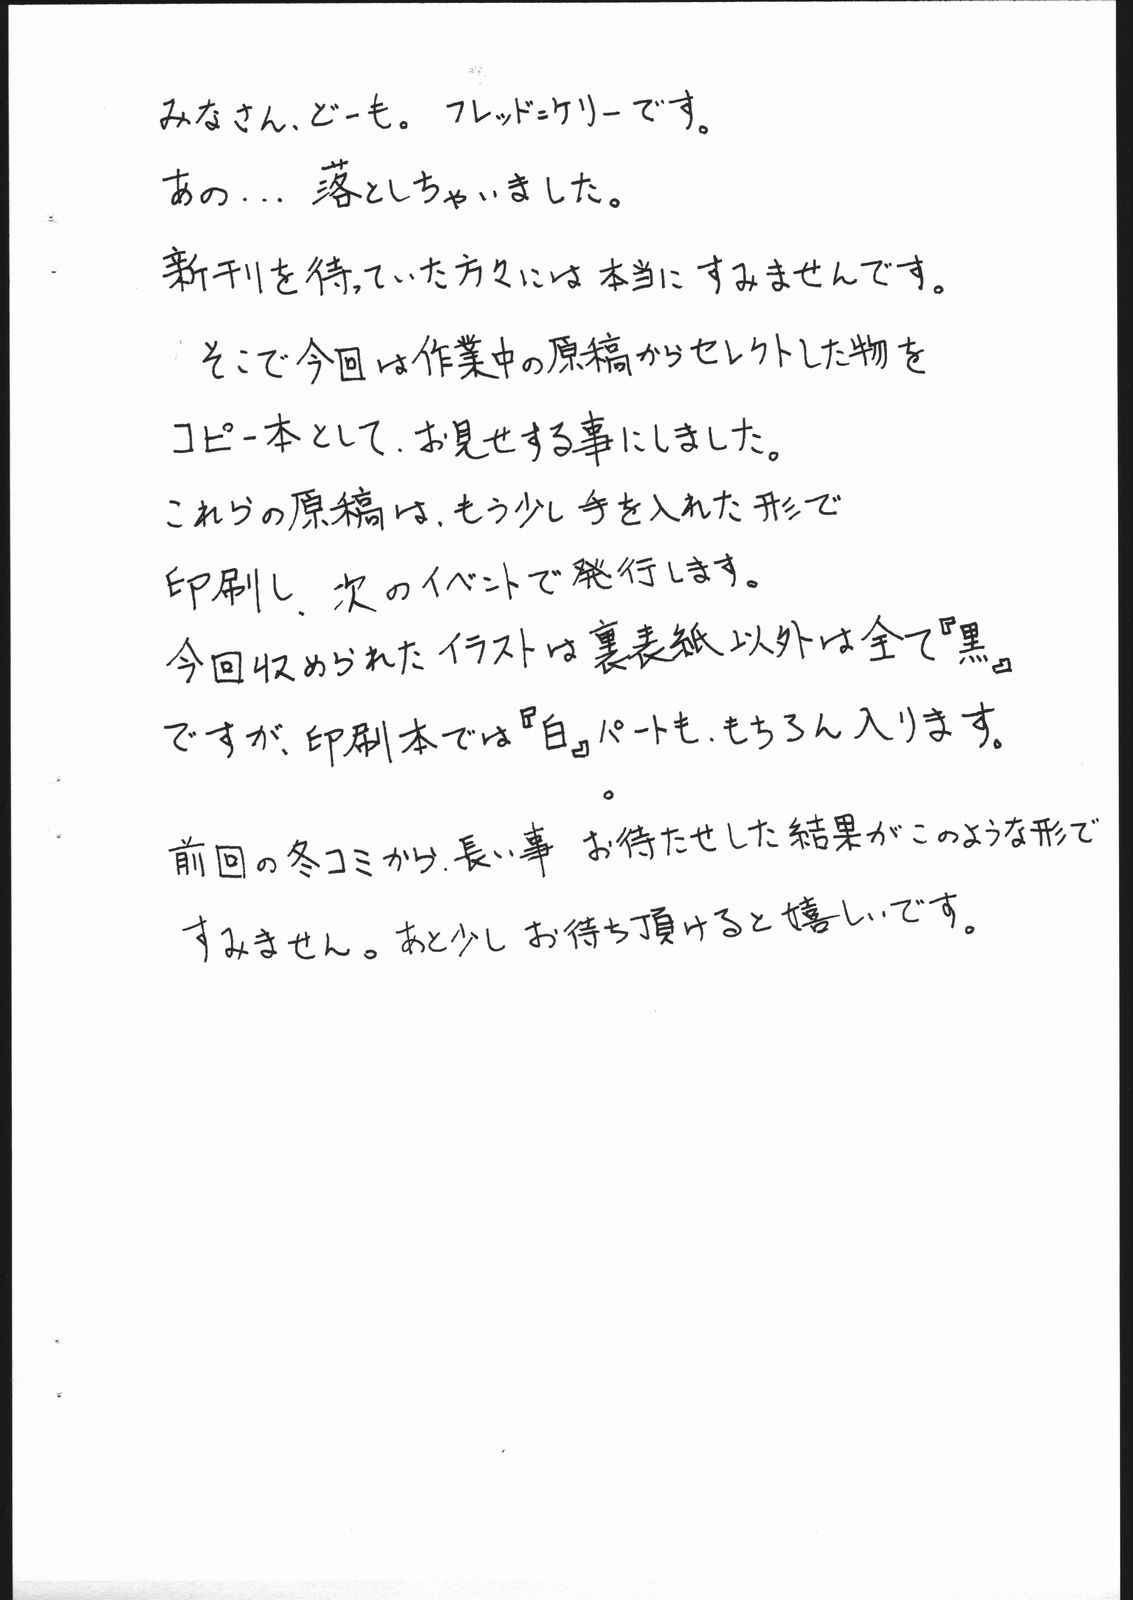 みなさん、どーも。フレッド=ケリーです。
あの... 落としちゃいました。
新刊を待っていた方々には本当にすみませんです。
そこで今回は作業中の原稿からセレクトした物を
コピー本として、お見せする事にしました。
これらの原稿は、もう少し手を入れた形で
印刷し、次のイベントで発行します。
今回収められたイラストは裏表紙以外は全て『黒』
ですが、印刷本では『白』パートも、もちろん入ります。
。
前回の冬コミから、長い事 お待たせした結果がこのような形で
すみません。あと少しお待ち頂けると嬉しいです。